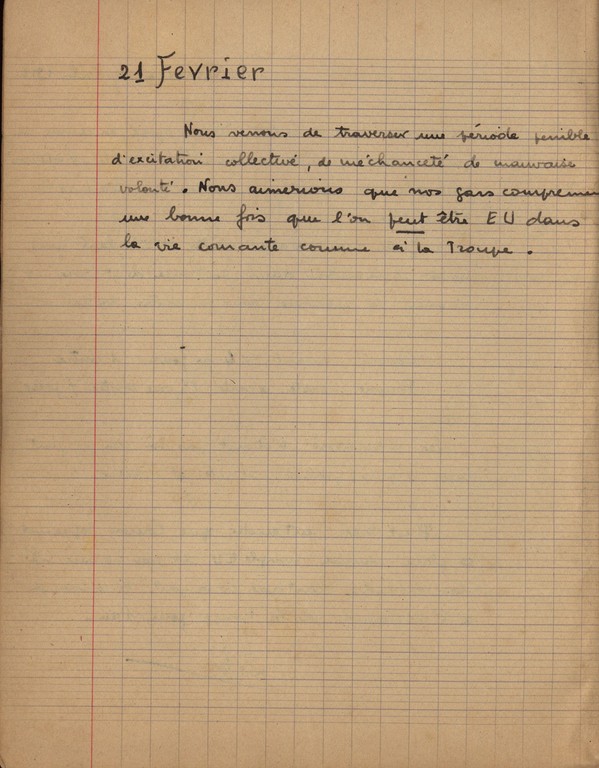 21 Fevrier
Nous venons de traverser une période penible
d'excitation collective, de méchanceté de mauvaise
volonté. Nous aimerions que nos gars comprennen
une bonne fois que l'on peut être EU dans
la vie courante comme à la Troupe.